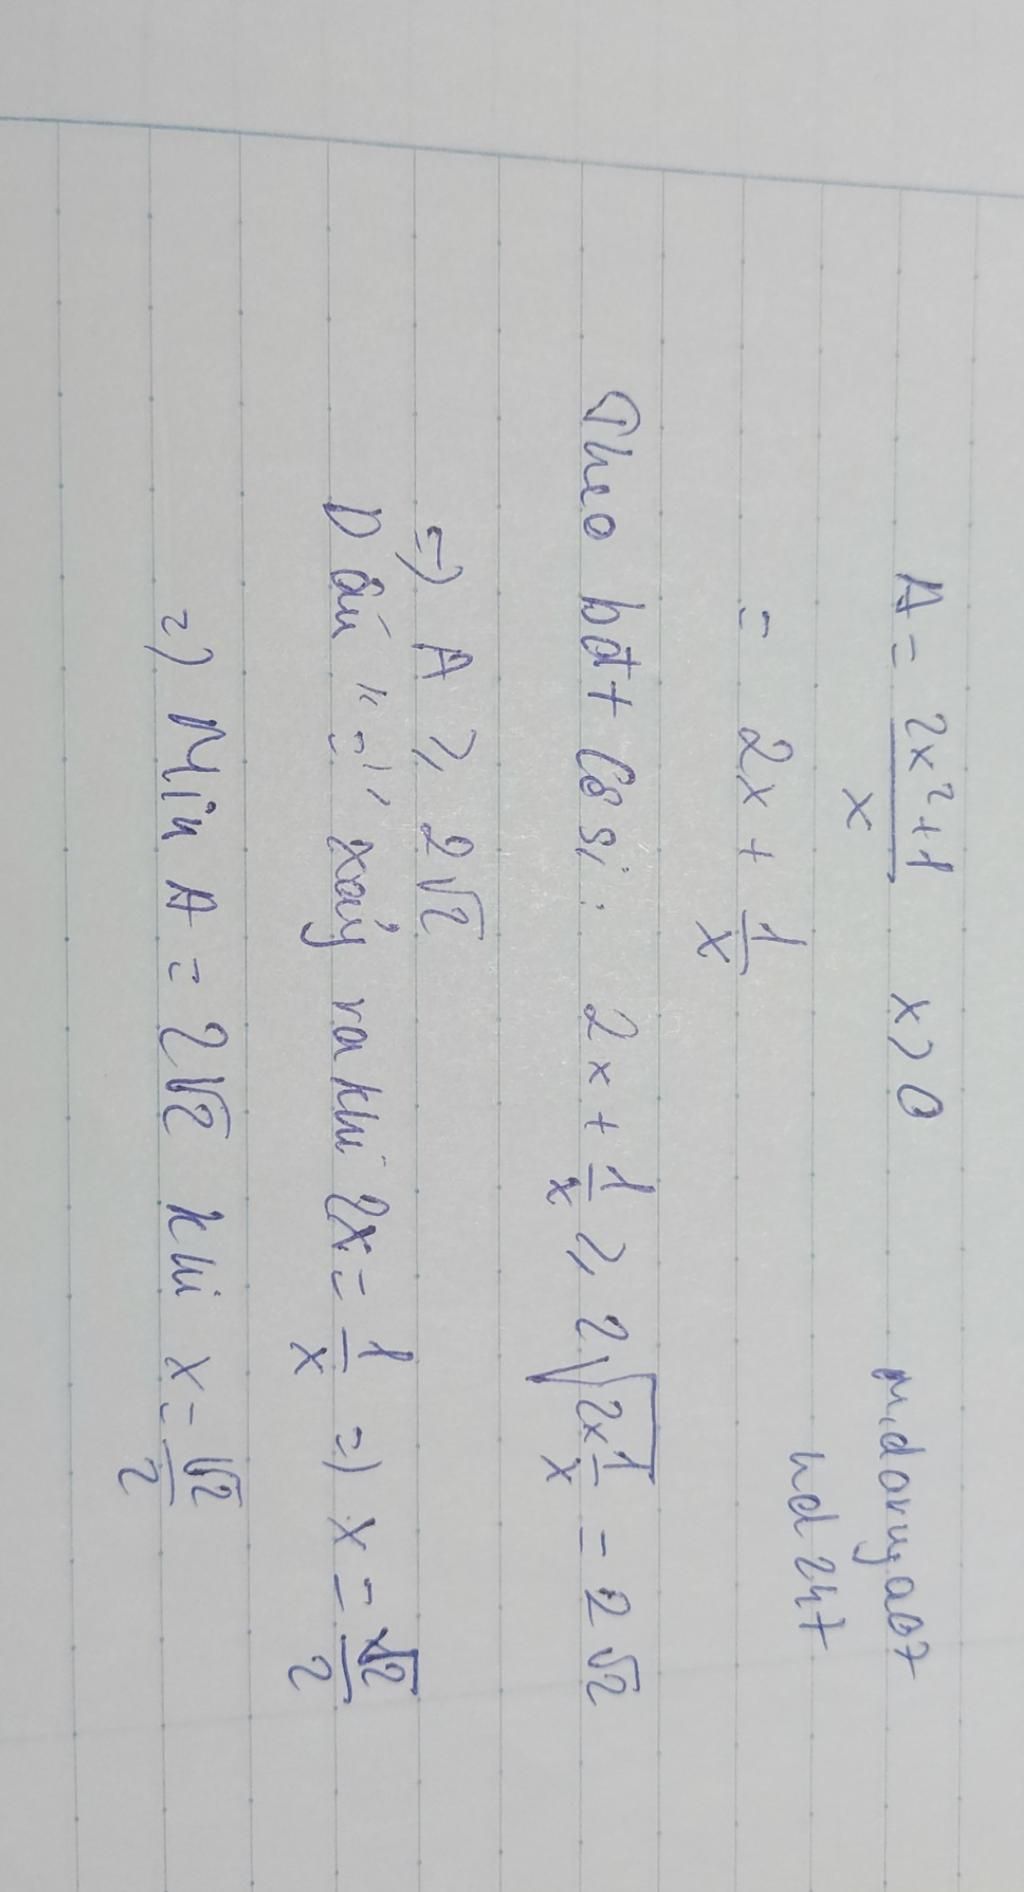 A = \frac{2x^2+1}{x} x > 0
= 2x + \frac{1}{x}
Theo bđt Cosi: 2x + \frac{1}{x} ≥ 2\sqrt{2x\frac{1}{x}} = 2\sqrt{2}
=) A ≥ 2\sqrt{2}
Dấu "=" xảy ra khi 2x = \frac{1}{x} =) x = \frac{\sqrt{2}}{2}
=) Min A = 2\sqrt{2} khi x = \frac{\sqrt{2}}{2}
hd247